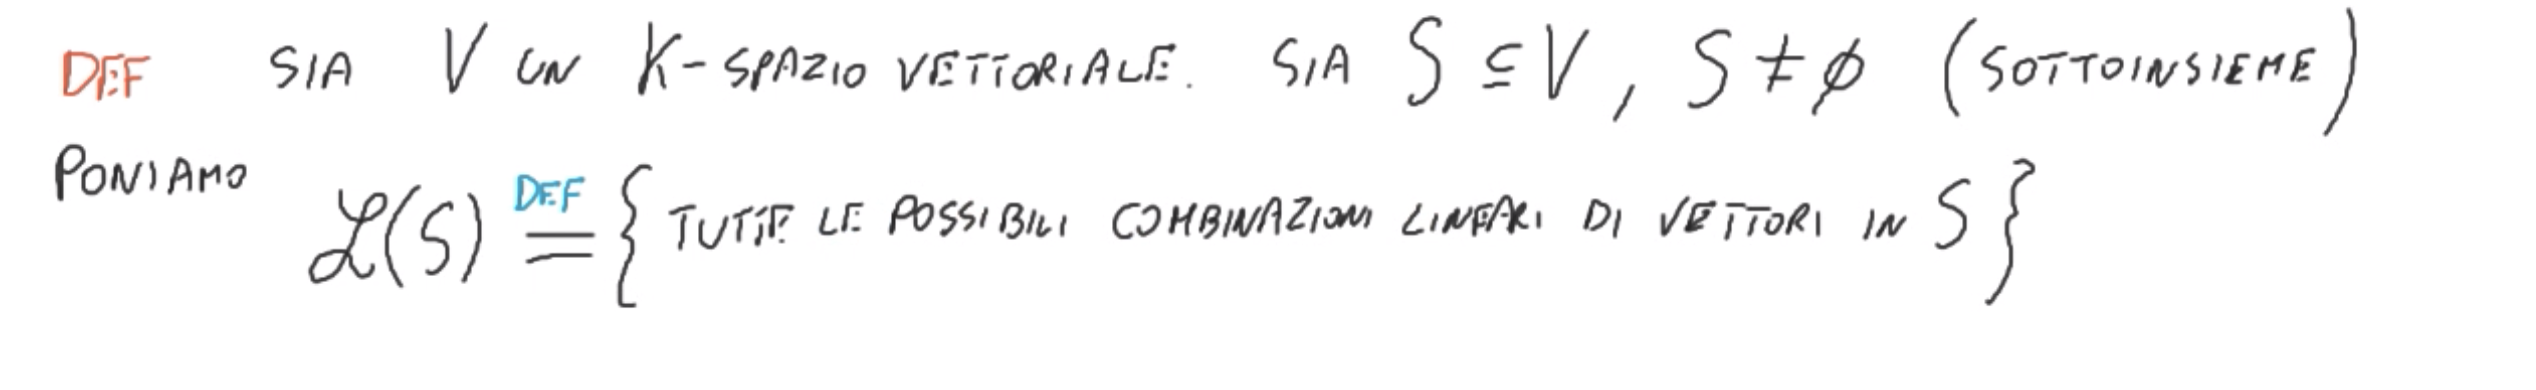 DEF SIA V UN K-SPAZIO VETTORIALE. SIA S ⊆ V, S ≠ ∅ (SOTTOINSIEME)
PONIAMO
ℒ(S) DEF = { TUTTE LE POSSIBILI COMBINAZIONI LINEARI DI VETTORI IN S }